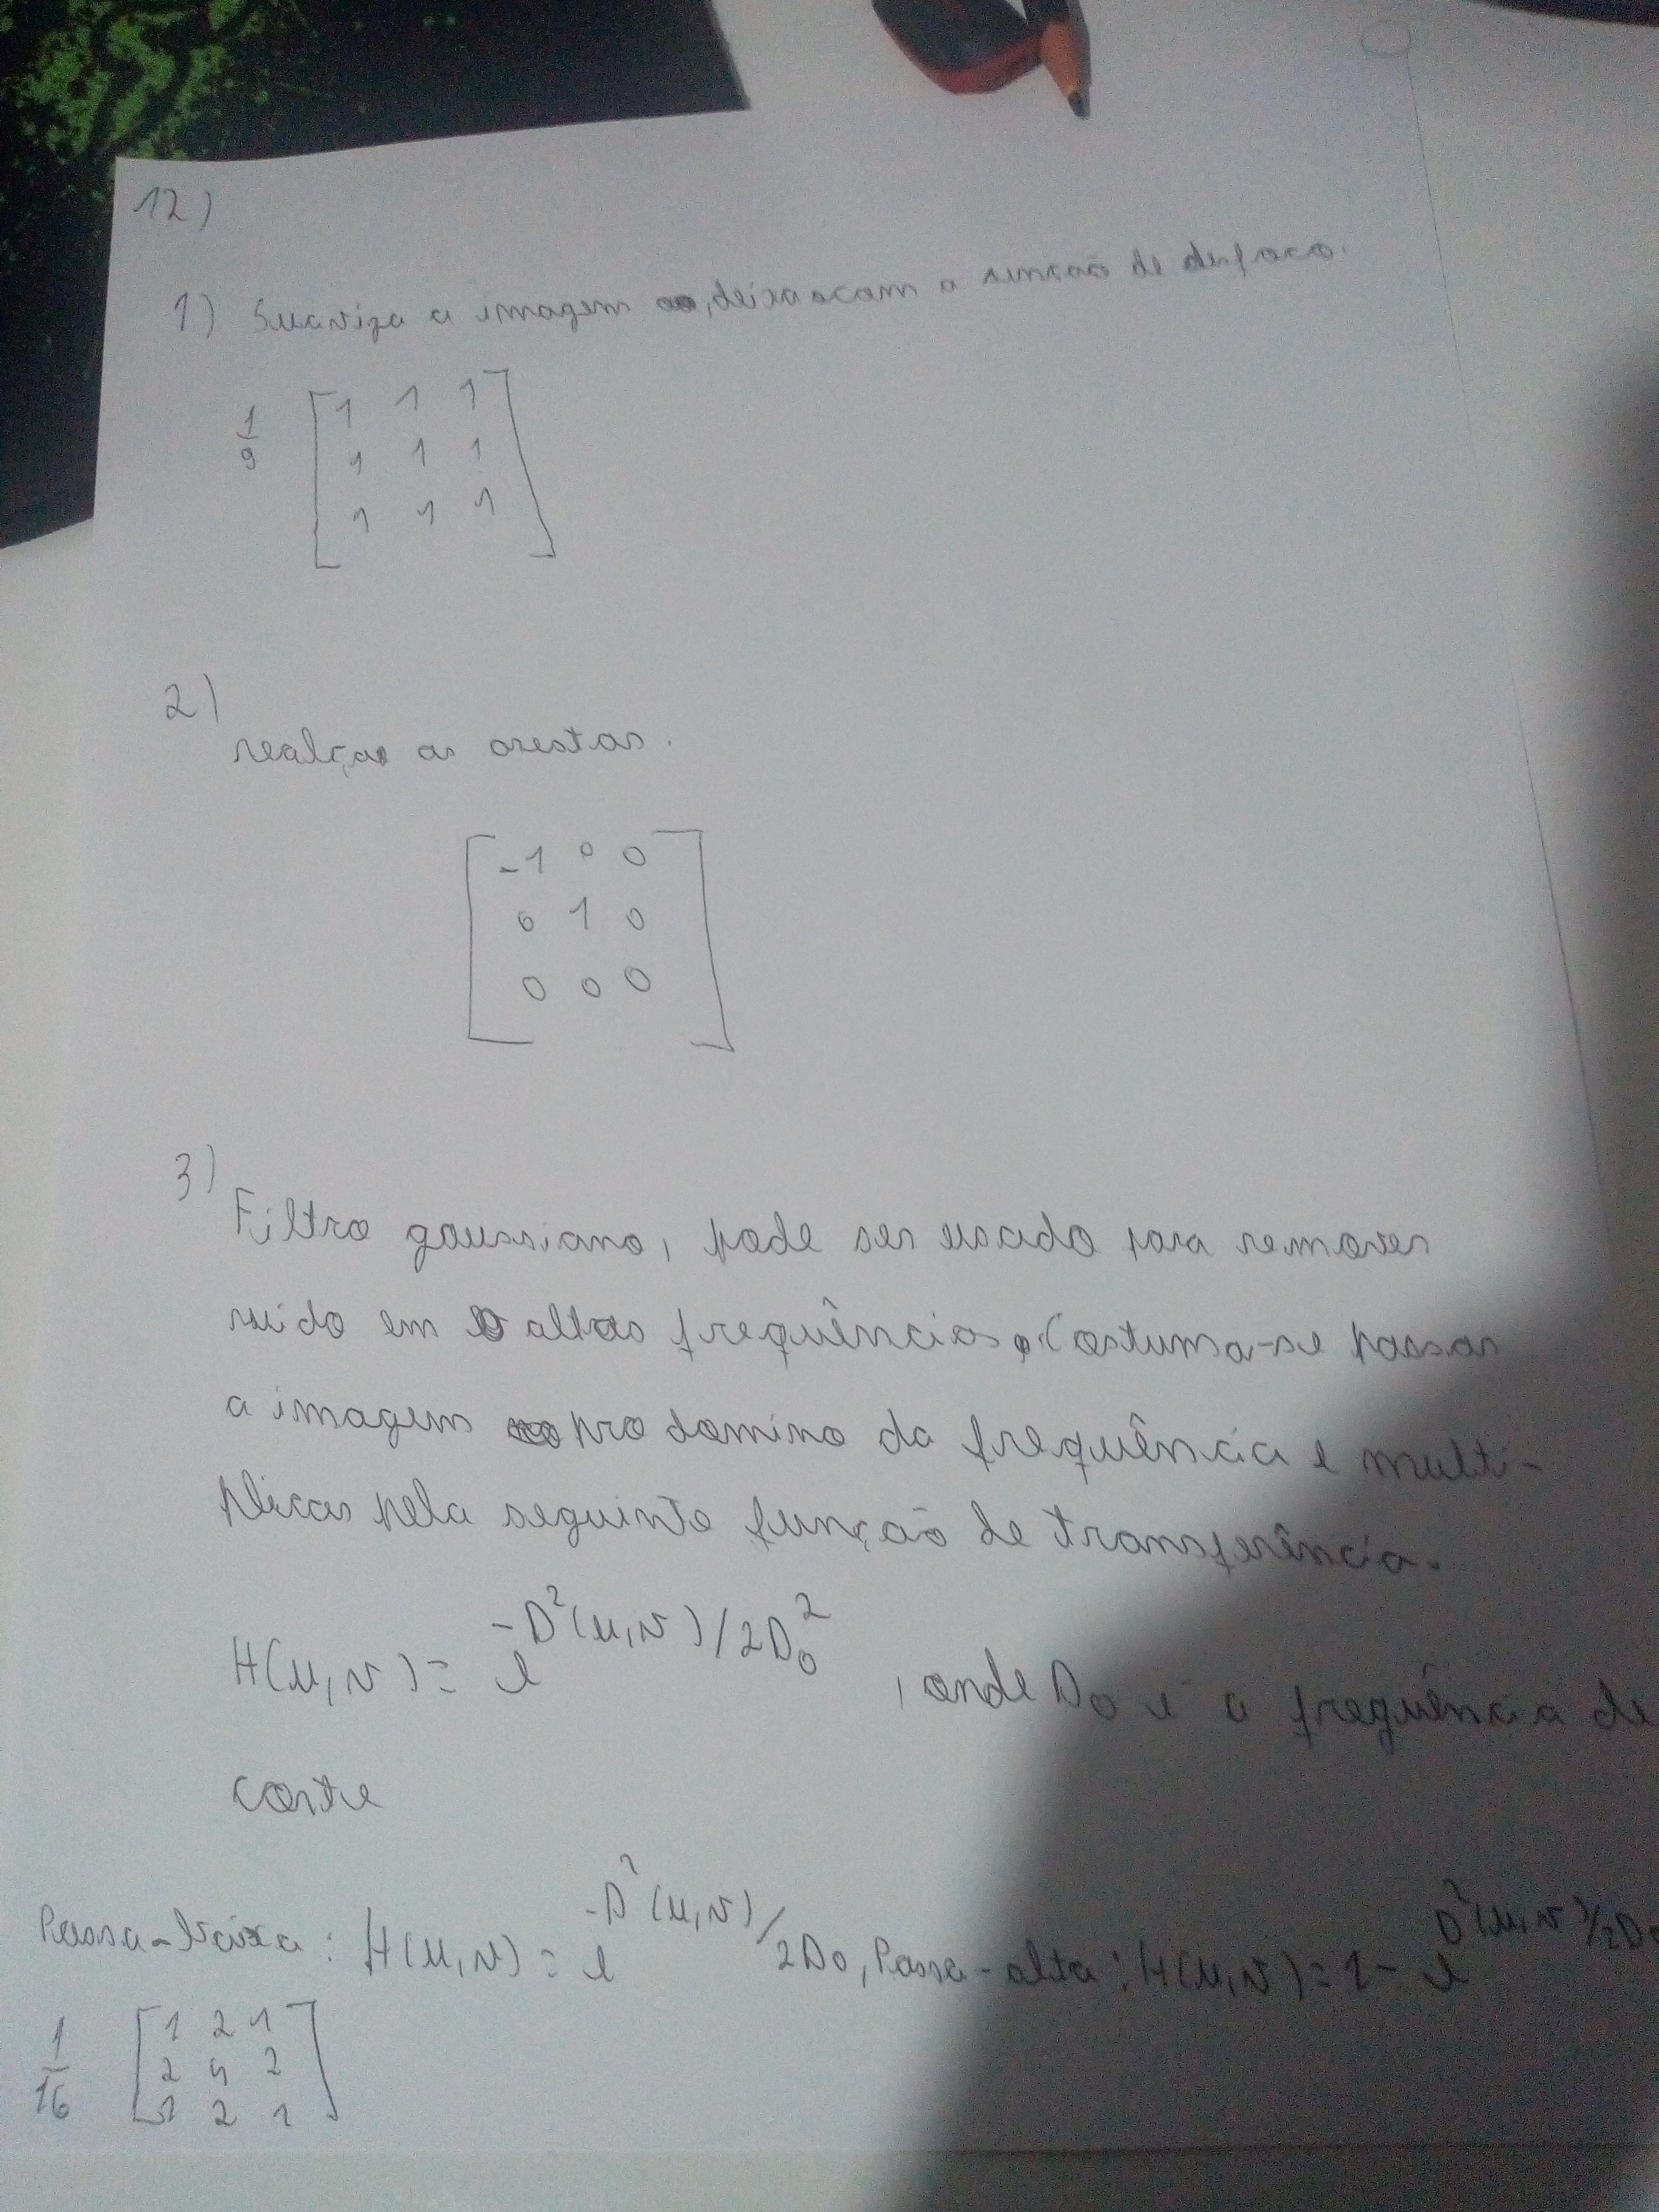 12)
1) Suaviza a imagem , deixa com a sensação de desfoco.
1/9 [1 1 1
1 1 1
1 1 1]
2)
realçar as arestas.
[-1 0 0
0 1 0
0 0 0]
3)
Filtro gaussiano, pode ser usado para remover
ruido em altas frequências. Costuma-se passar
a imagem pro domino da frequência e multi-
plicar pela seguinte função de transferência.
H(u,v) = e^{-D²(u,v)/2D₀²} , onde D₀ é a frequência de
corte
Passa-baixa: H(u,v) = e^{-D²(u,v)/2D₀}, Passa-alta: H(u,v) = 1 - e^{D²(u,v)/2D₀}
1/16 [1 2 1
2 4 2
1 2 1]